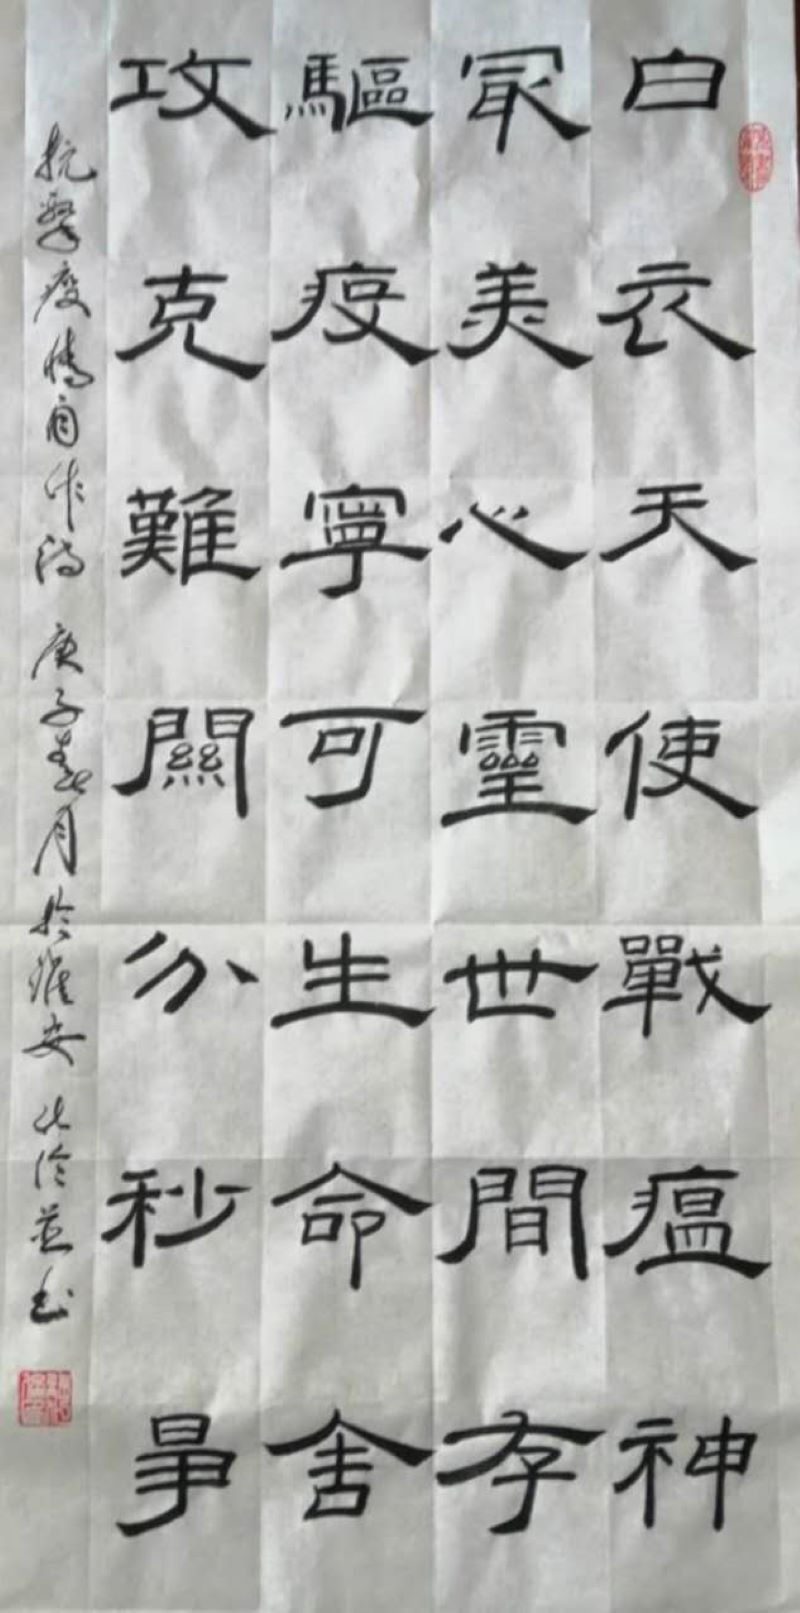 白衣天使戰瘟神
冣美心靈世間存
驅疫寧可生命舍
攻克難關分秒爭
抗擊疫情自作詩 庚子春月於淮安 並书